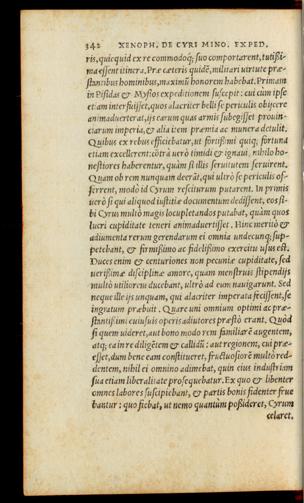 342 XENOPH. DE CYRI MINO. EXPED.
ris, quicquid ex re commodoq; suo comportarent, tutißi-
ma essent itinera. Præ cæteris quidē, militari uirtute præ-
stantibus hominibus, maximū honorem habebat. Primam
in Pisidas & Mysos expeditionem suscepit: cui cùm ipse
etiam interfuisset, quos alacriter belli se periculis obijcere
animaduerterat, ijs earum quas armis subegisset prouin-
ciarum imperia, & alia item præmia ac munera detulit.
Quibus ex rebus efficiebatur, ut fortißimi quiq; fortuna
etiam excellerent: cōtrà uerò timidi & ignaui, nihilo ho-
nestiores haberentur, quàm si illis seruitutem seruirent.
Quam ob rem nunquam deerāt, qui ultrò se periculis of-
ferrent, modò id Cyrum resciturum putarent. In primis
uerò si qui aliquod iustitiæ documentum dedissent, eos si-
bi Cyrus multò magis locupletandos putabat, quàm quos
lucri cupiditate teneri animaduertisset. Hinc meritò &
adiumenta rerum gerendarum ei omnia undecunq; sup-
petebant, & firmißimo ac fidelißimo exercitu usus est.
Duces enim & centuriones non pecuniæ cupiditate, sed
uerißimæ disciplinæ amore, quam menstruis stipendijs
multò utiliorem ducebant, ultrò ad eum nauigarunt. Sed
neque ille ijs unquam, qui alacriter imperata fecissent, se
ingratum præbuit. Quare uni omnium optimi ac præ-
stantißimi cuiusuis operis adiutores præstò erant. Quòd
si quem uideret, aut bono modo rem familiarē augentem,
atq; ea in re diligētem & callidū: aut regionem, cui præ-
esset, dum bene eam constitueret, fructuosiorē multò red-
dentem, nihil ei omnino adimebat, quin eius industriam
sua etiam liberalitate prosequebatur. Ex quo & libenter
omnes labores suscipiebant, & partis bonis fidenter frue
bantur: quo fiebat, ut nemo quantùm poßideret, Cyrum
celaret.